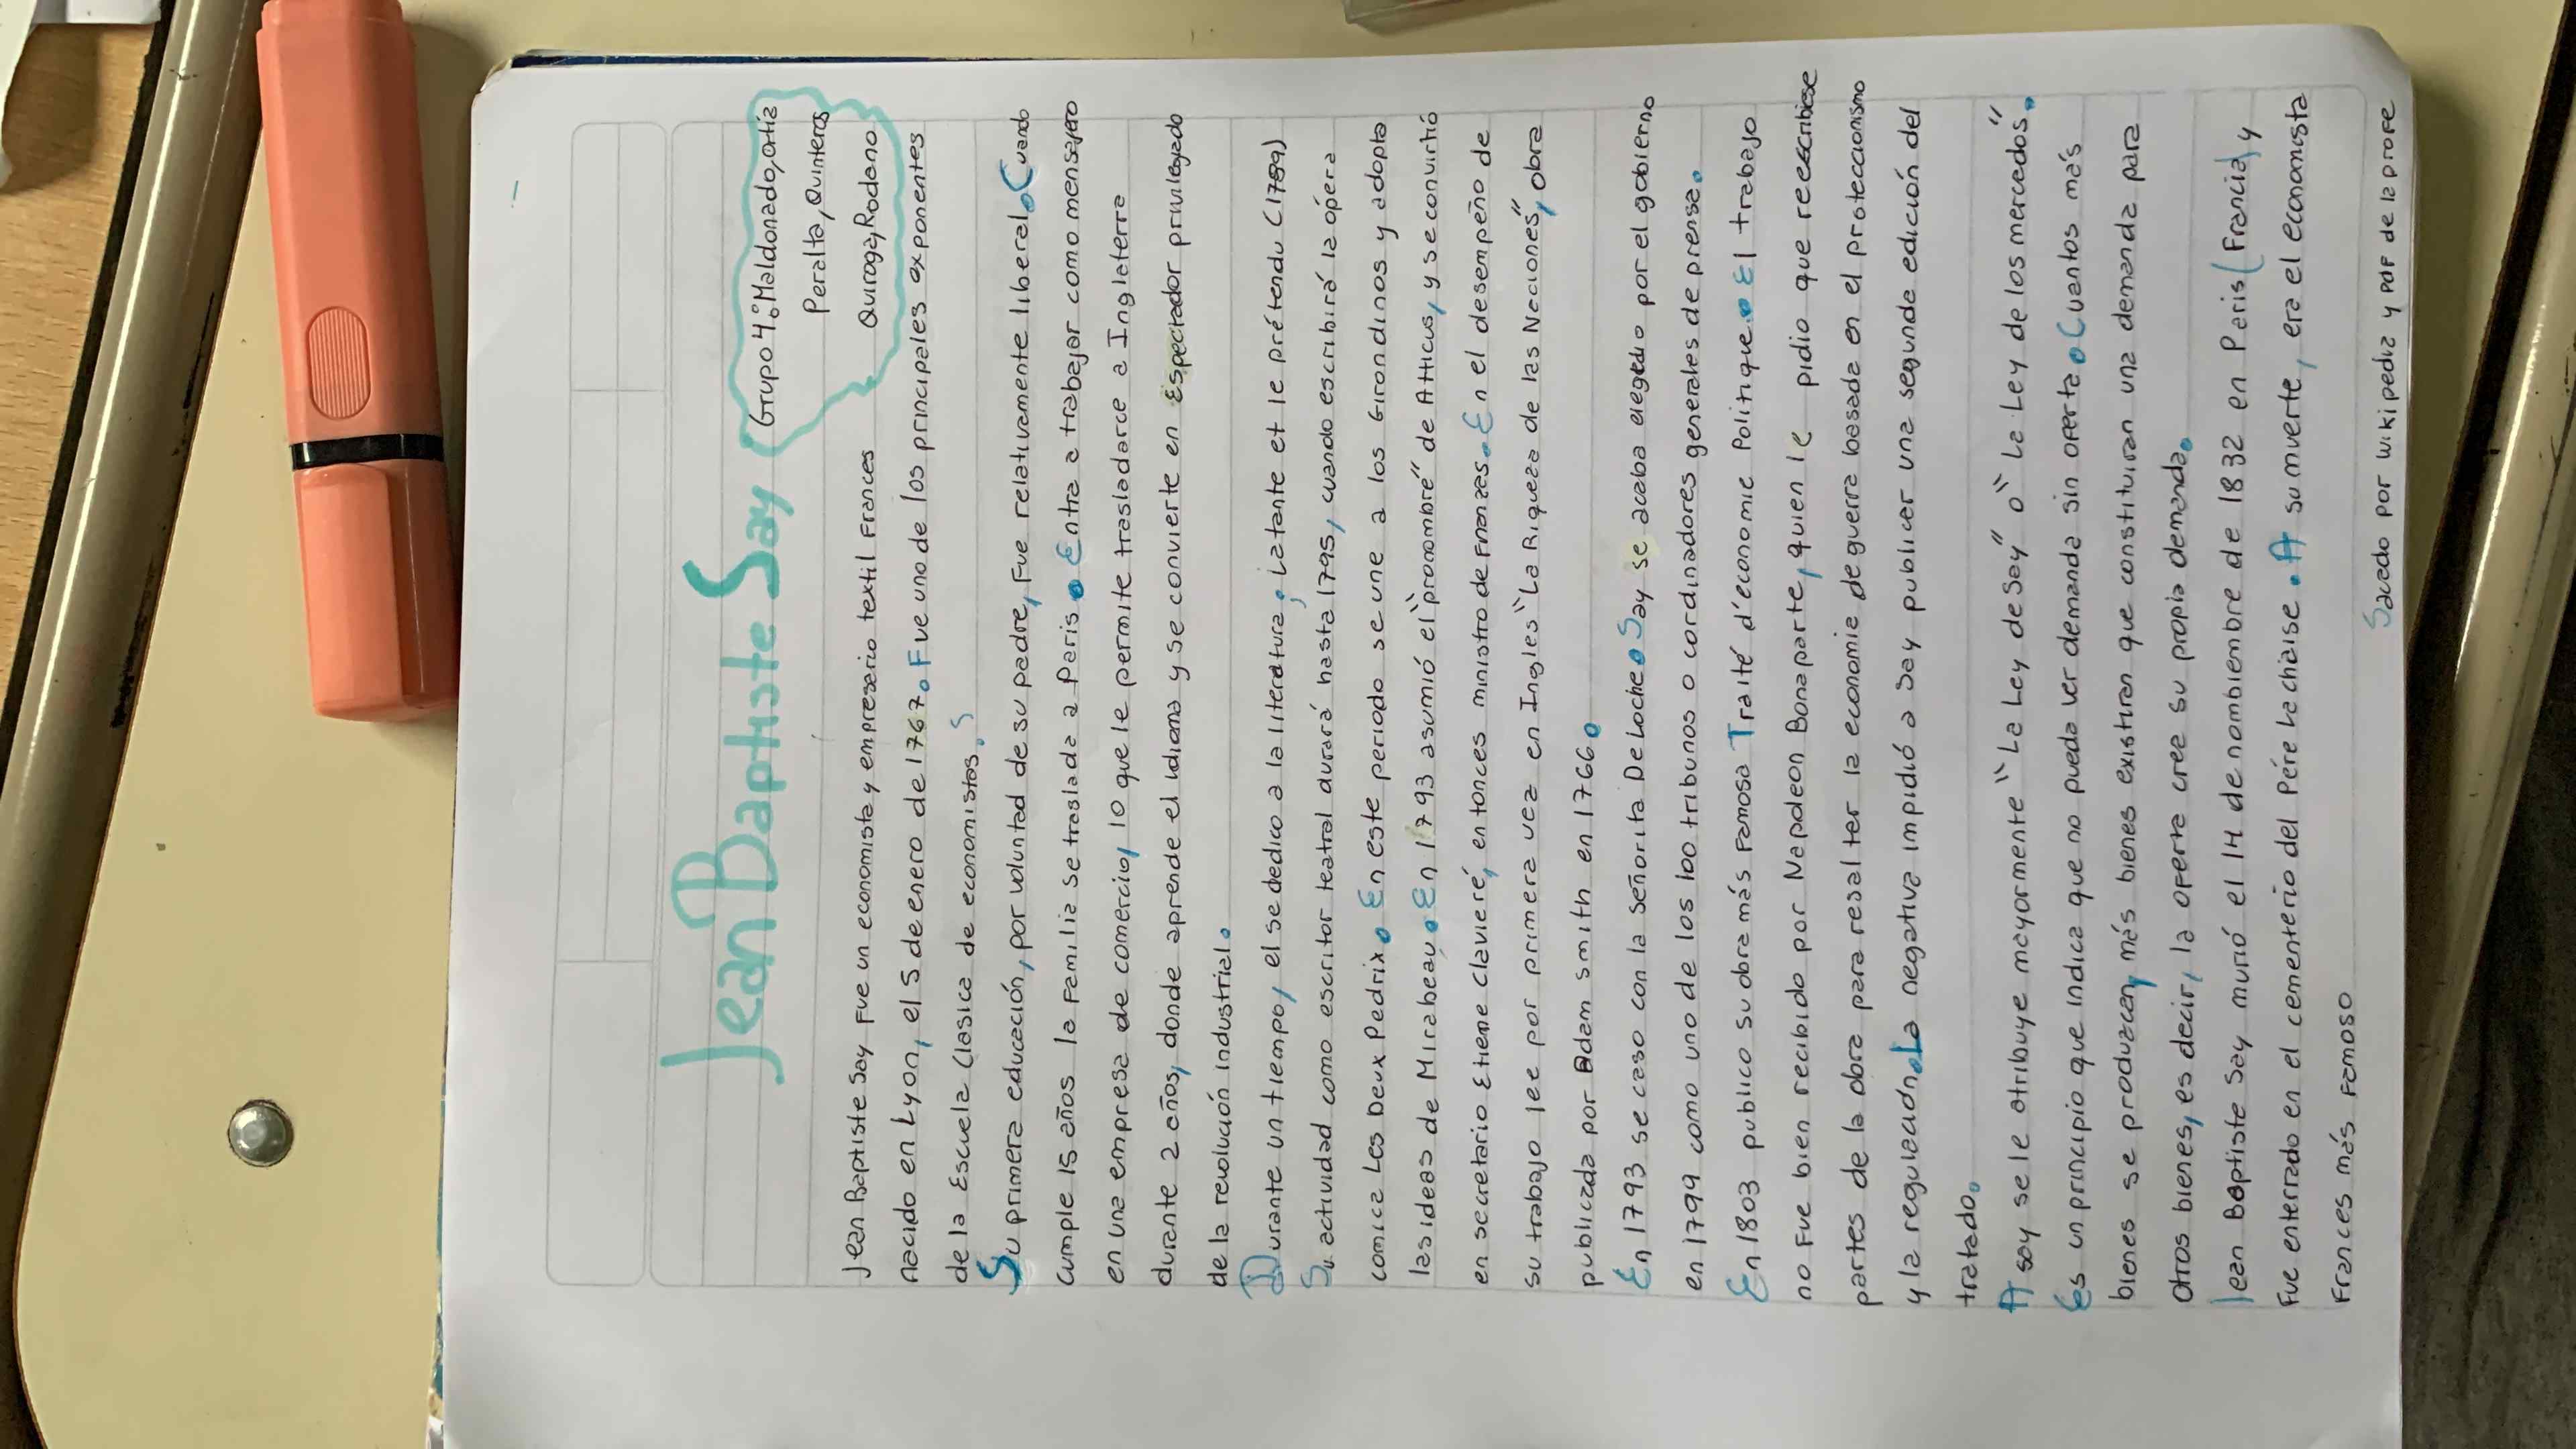 Jean Baptiste Say
Grupo 4: Maldonado, ortiz
Peralta, Quinteros
Quiroga, Rodeno
Jean Baptiste Say Fue un economista y empresario textil Frances
nacido en Lyon, el 5 de enero de 1767. Fue uno de los principales exponentes
de la Escuela Clasica de economistas. S
Su primera educación, por voluntad de su padre, Fue relativamente liberal. Cuando
cumple 15 años la Familia se traslada a Paris. Entra a trabajar como mensajero
en una empresa de comercio, lo que le permite trasladarce a Inglaterra
durante 2 años, donde aprende el idioma y se convierte en Espectador privilegiado
de la revolución industrial.
Durante un tiempo, el se dedico a la literatura; Latante et le prétendu (1789)
Su actividad como escritor teatral durará hasta 1795, cuando escribirá la ópera
comica Les Deux Pedrix. En este periodo se une a los Girondinos y adopta
las ideas de Mirabeau. En 1793 asumió el "pronombré" de Atticus, y se convirtió
en secretario Etiene claviere, entonces ministro de Finanzas. En el desempeño de
su trabajo lee por primera vez en Ingles "La Riqueza de las Naciones", obra
publicada por Adam smith en 1766.
En 1793 se caso con la señorita Deloche. Say se acaba elegedio por el gobierno
en 1799 como uno de los 100 tribunos o cordinadores generales de prensa.
En 1803 publico su obra más Famosa Traité d'economie Politique. El trabajo
no Fue bien recibido por Napoleon Bonaparte, quien le pidio que reescribiese
partes de la obra para resalter la economia de guerra basada en el proteccionismo
y la regulación. La negativa impidió a Say publicar una segunda edición del
tratado.
A say se le atribuye mayormente "La Ley de Say" o "La Ley de los mercados".
Es un principio que indica que no pueda ver demanda sin oferta. Cuantos más
bienes se produzcan, más bienes existiran que constituiran una demanda para
otros bienes, es decir, la oferta cree su propia demanda.
Jean Baptiste Say murió el 14 de nombiembre de 1832 en Paris (Francia) y
Fue enterrado en el cementerio del Pére Lachaise. A su muerte, era el economista
Frances más Famoso
Sacado por wikipedia y PDF de la profe